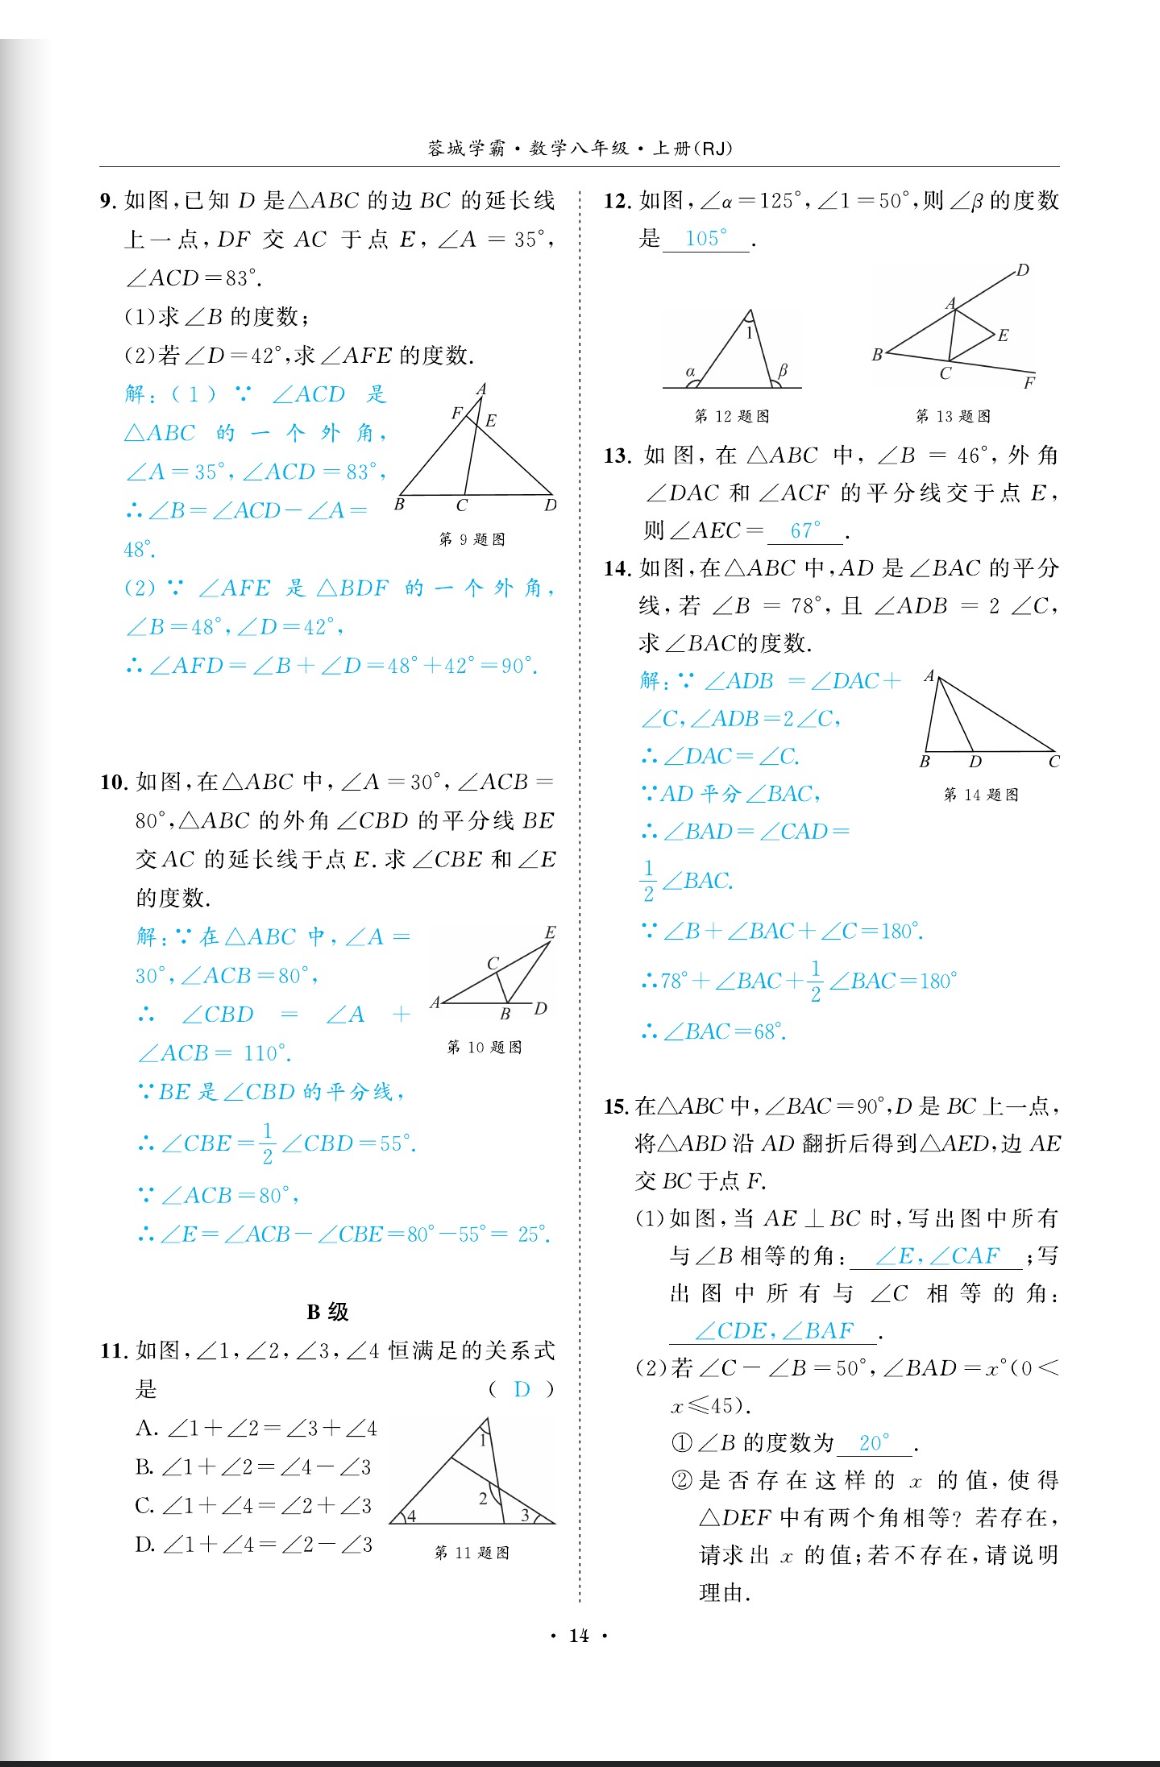 蓉城学霸·数学八年级·上册(RJ)
9. 如图,已知 D 是△ABC 的边 BC 的延长线
上一点,DF 交 AC 于点 E,∠A=35°,
∠ACD=83°.
(1)求∠B 的度数;
(2)若∠D=42°,求∠AFE 的度数.
解:(1)∵ ∠ACD 是
△ABC 的一个外角,
∠A=35°,∠ACD=83°,
∴∠B=∠ACD-∠A=
48°.
A
F
E
B
C
D
第 9 题图
(2)∵ ∠AFE 是△BDF 的一个外角,
∠B=48°,∠D=42°,
∴∠AFD=∠B+∠D=48°+42°=90°.
10. 如图,在△ABC 中,∠A=30°,∠ACB=
80°,△ABC 的外角∠CBD 的平分线 BE
交 AC 的延长线于点 E.求∠CBE 和∠E
的度数.
解:∵在△ABC 中,∠A=
30°,∠ACB=80°,
∴ ∠CBD = ∠A +
∠ACB= 110°.
E
C
A
B
D
第 10 题图
∵BE 是∠CBD 的平分线,
∴∠CBE=1/2∠CBD=55°.
∵∠ACB=80°,
∴∠E=∠ACB-∠CBE=80°-55°= 25°.
B 级
11. 如图,∠1,∠2,∠3,∠4 恒满足的关系式
是 ( D )
A. ∠1+∠2=∠3+∠4
B. ∠1+∠2=∠4-∠3
C. ∠1+∠4=∠2+∠3
D. ∠1+∠4=∠2-∠3
1
2
4
3
第 11 题图
12. 如图,∠α=125°,∠1=50°,则∠β的度数
是 105° .
1
α
β
第 12 题图
D
A
E
B
C
F
第 13 题图
13. 如图,在△ABC 中,∠B = 46°,外角
∠DAC 和∠ACF 的平分线交于点 E,
则∠AEC= 67° .
14. 如图,在△ABC 中,AD 是∠BAC 的平分
线,若∠B = 78°,且∠ADB = 2∠C,
求∠BAC的度数.
解:∵∠ADB =∠DAC+
∠C,∠ADB=2∠C,
∴∠DAC=∠C.
∵AD 平分∠BAC,
∴∠BAD=∠CAD=
1/2∠BAC.
A
B
D
C
第 14 题图
∵∠B+∠BAC+∠C=180°.
∴78°+∠BAC+1/2∠BAC=180°
∴∠BAC=68°.
15. 在△ABC 中,∠BAC=90°,D 是 BC 上一点,
将△ABD 沿 AD 翻折后得到△AED,边 AE
交 BC 于点 F.
(1)如图,当 AE⊥BC 时,写出图中所有
与∠B 相等的角: ∠E,∠CAF ;写
出图中所有与∠C 相等的角:
∠CDE,∠BAF .
(2)若∠C-∠B=50°,∠BAD=x°(0<
x≤45).
①∠B 的度数为 20° .
②是否存在这样的 x 的值,使得
△DEF 中有两个角相等? 若存在,
请求出 x 的值;若不存在,请说明
理由.
· 14 ·